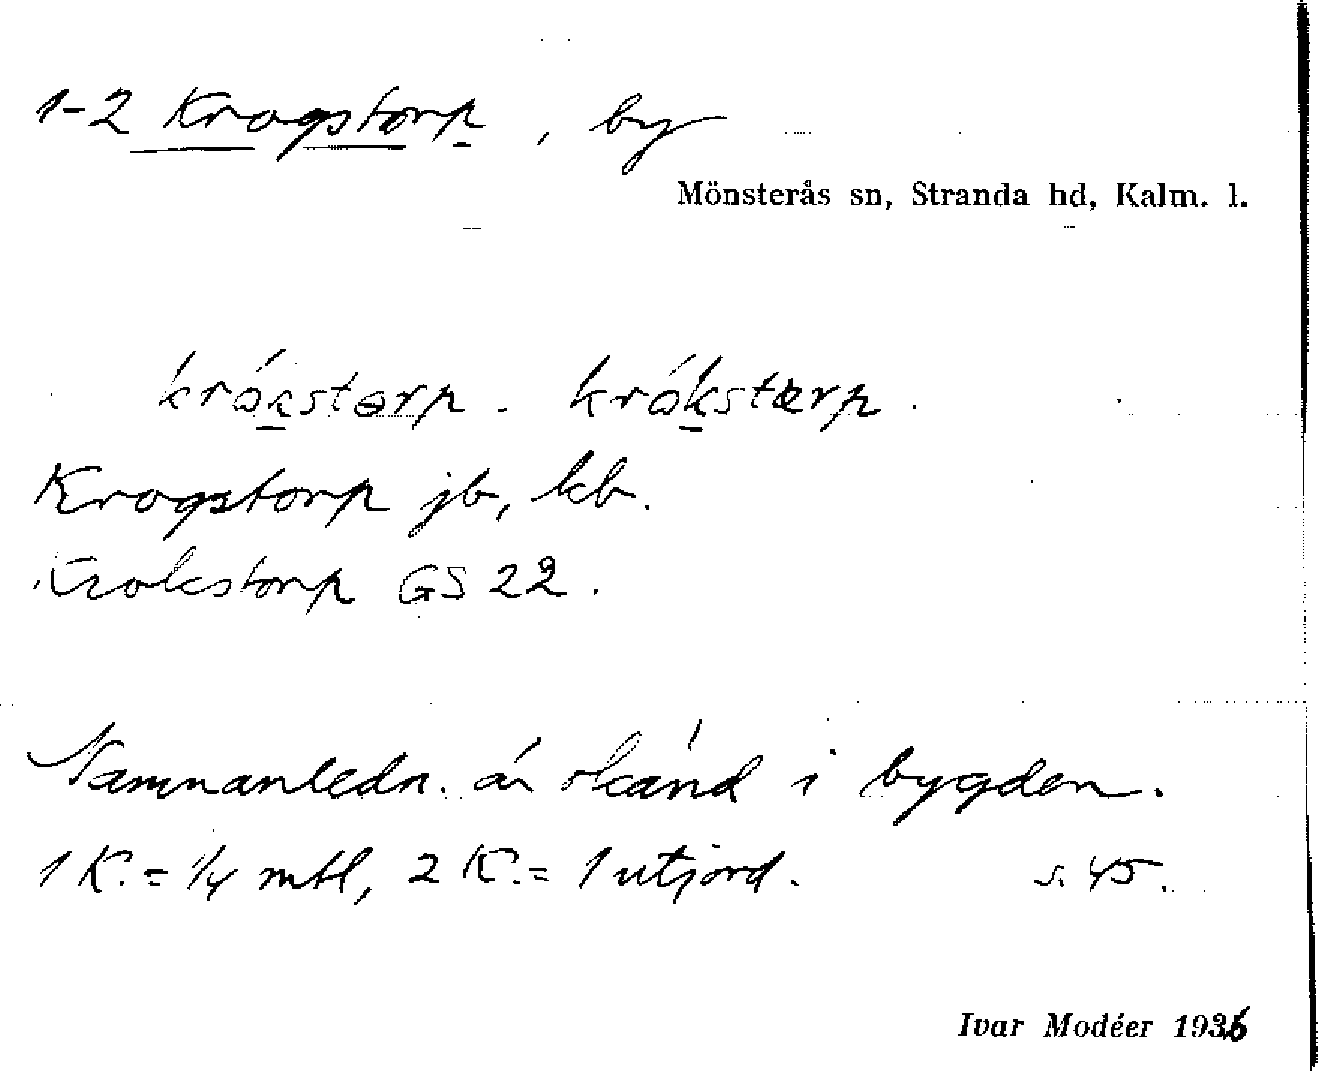 1-2 Krogstorp, by
Mönsterås sn, Stranda hd, Kalm. l.
krókstorp - krókstærp.
Krogstorp jb, kb.
Krokstorp GS 22.
Namnanledn. är okänd i bygden.
1 K. = 1/4 mtl, 2 K. = 1 utjord. s. 45.
Ivar Modéer 1936